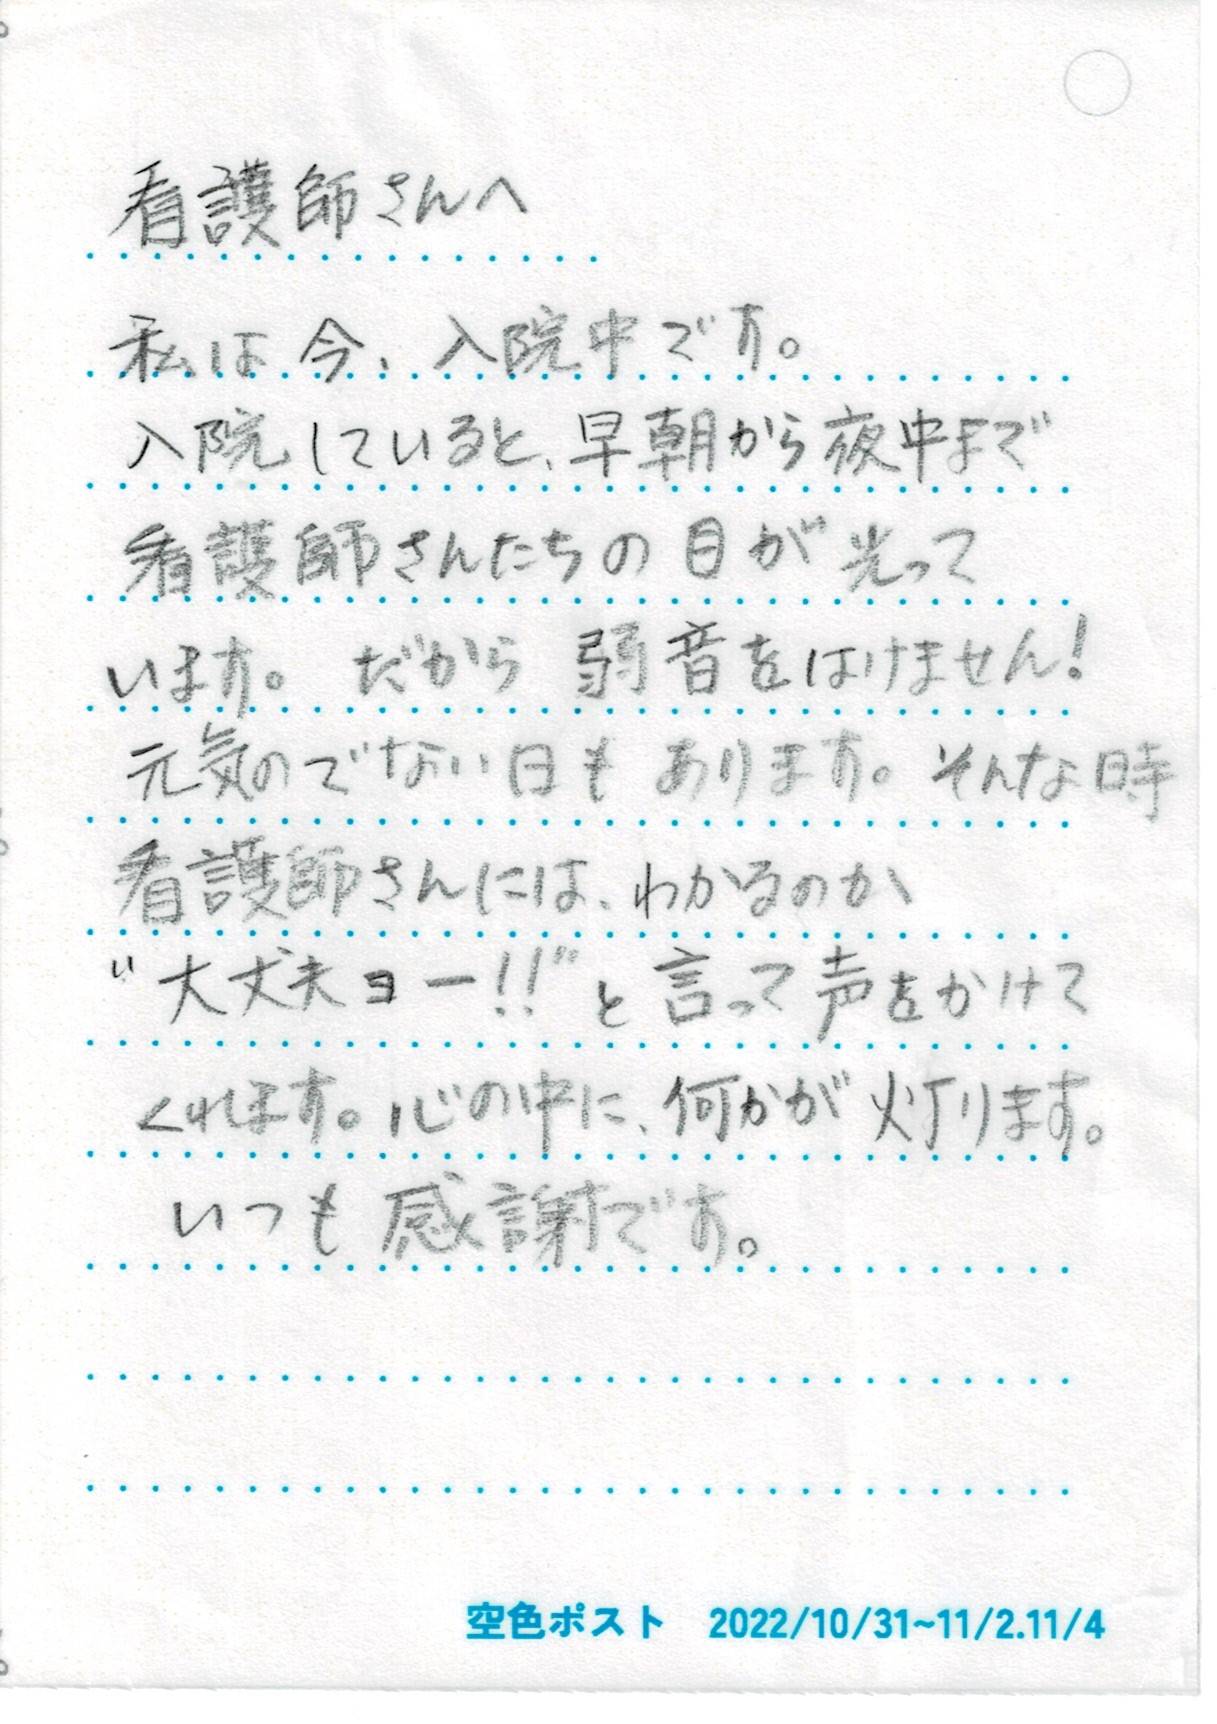 看護師さんへ
私は今、入院中です。
入院していると、早朝から夜中まで
看護師さんたちの目が光って
います。だから弱音をはけません！
元気のでない日もあります。そんな時
看護師さんには、わかるのか
“大丈夫ヨー!!”と言って声をかけて
くれます。心の中に、何かが灯ります。
いつも感謝です。
空色ポスト 2022/10/31~11/2.11/4